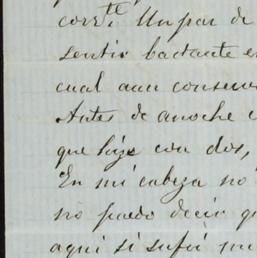 corr.te Un par de
sentir bastante
cual aun conser
Antes de anoche
que hize con dos,
En mi cabeza no
no puedo decir q
aqui si sufri mu